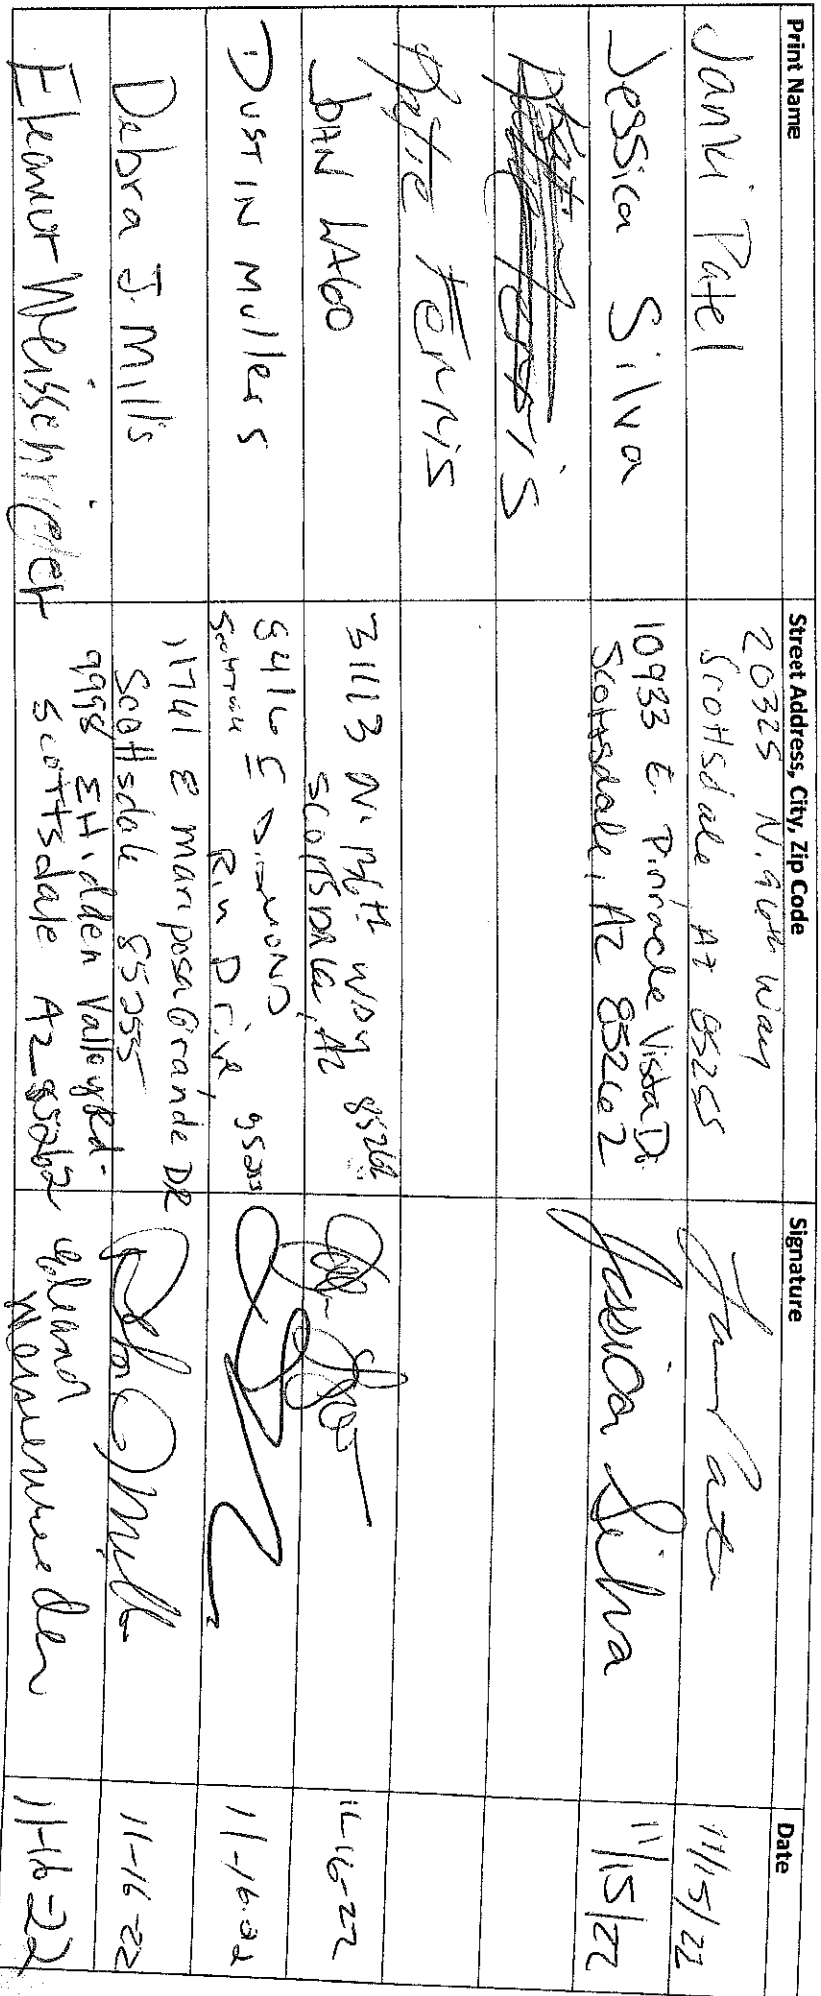 Print Name Street Address, City, Zip Code Signature Date
Janki Patel
20325 N. 96th Way
Scottsdale AZ 85255
11/15/22
Jessica Silva
10933 E. Pinnacle Vista Dr.
Scottsdale, AZ 85262
Jessica Silva
11/15/22
Ferris
Ferris
JOHN LAGO
31113 N. Way 85262
SCOTTSDALE, AZ
11-16-22
DUSTIN Mullers
E DIAMOND
Scottsdale Rim Drive 85255
11-16-22
Debra J. Mills
11741 E Mariposa Grande DR
Scottsdale 85255
Debra J Mills
11-16-22
Eleanor
9998 E Hidden Valley Rd.
Scottsdale AZ 85262
11-16-22